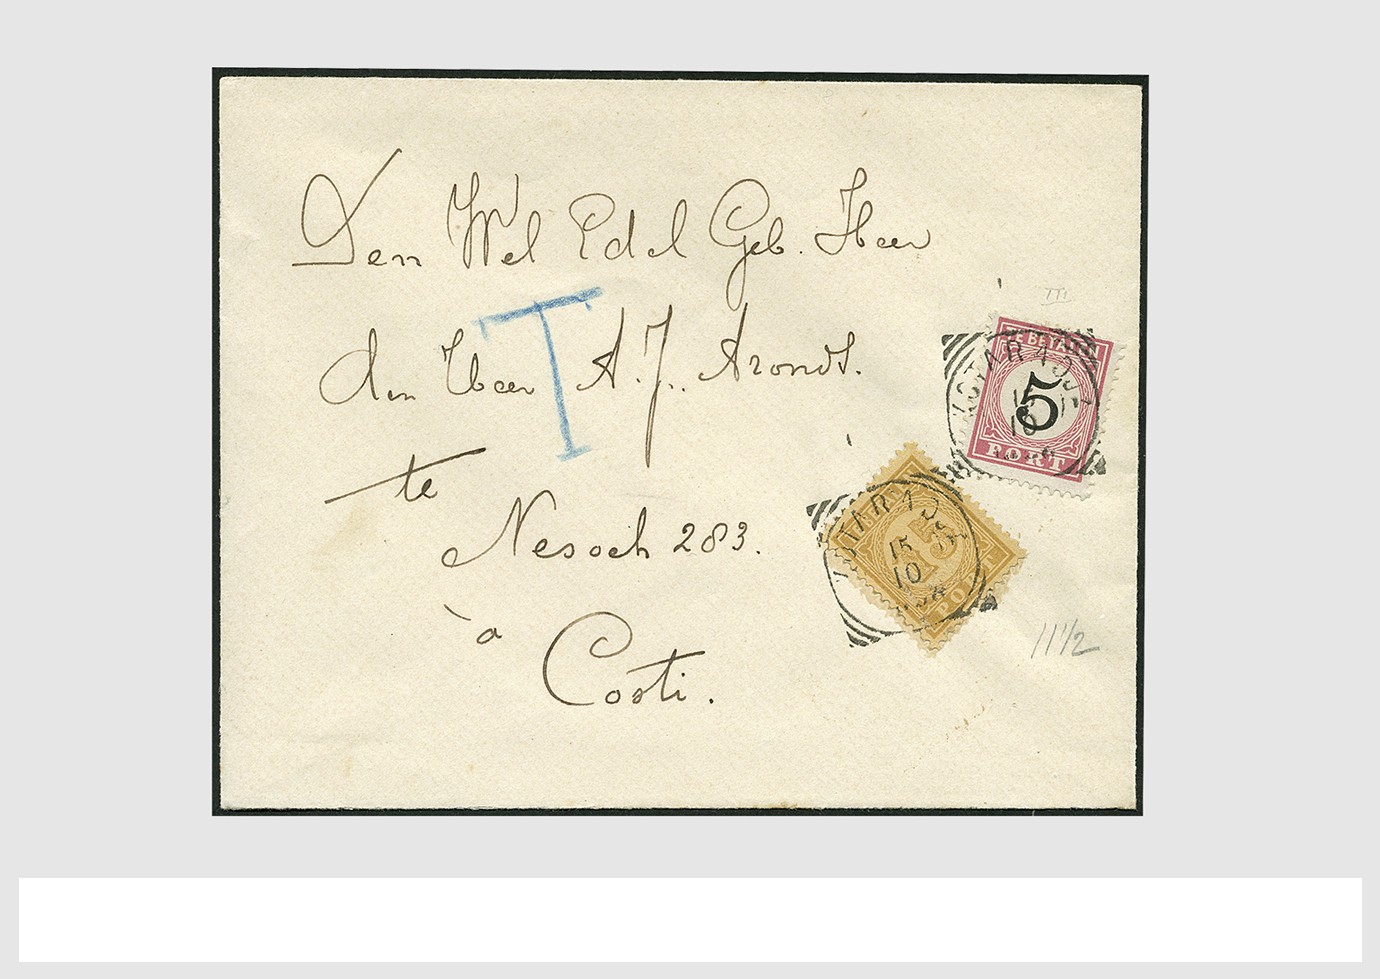 Den Wel Edel Geb. Heer
den Heer A. J. Arondt.
T
te
Nesoch 283.
à
Costi.
TE BETALEN
5
PORT
15
10
15
POST
15
10
11½